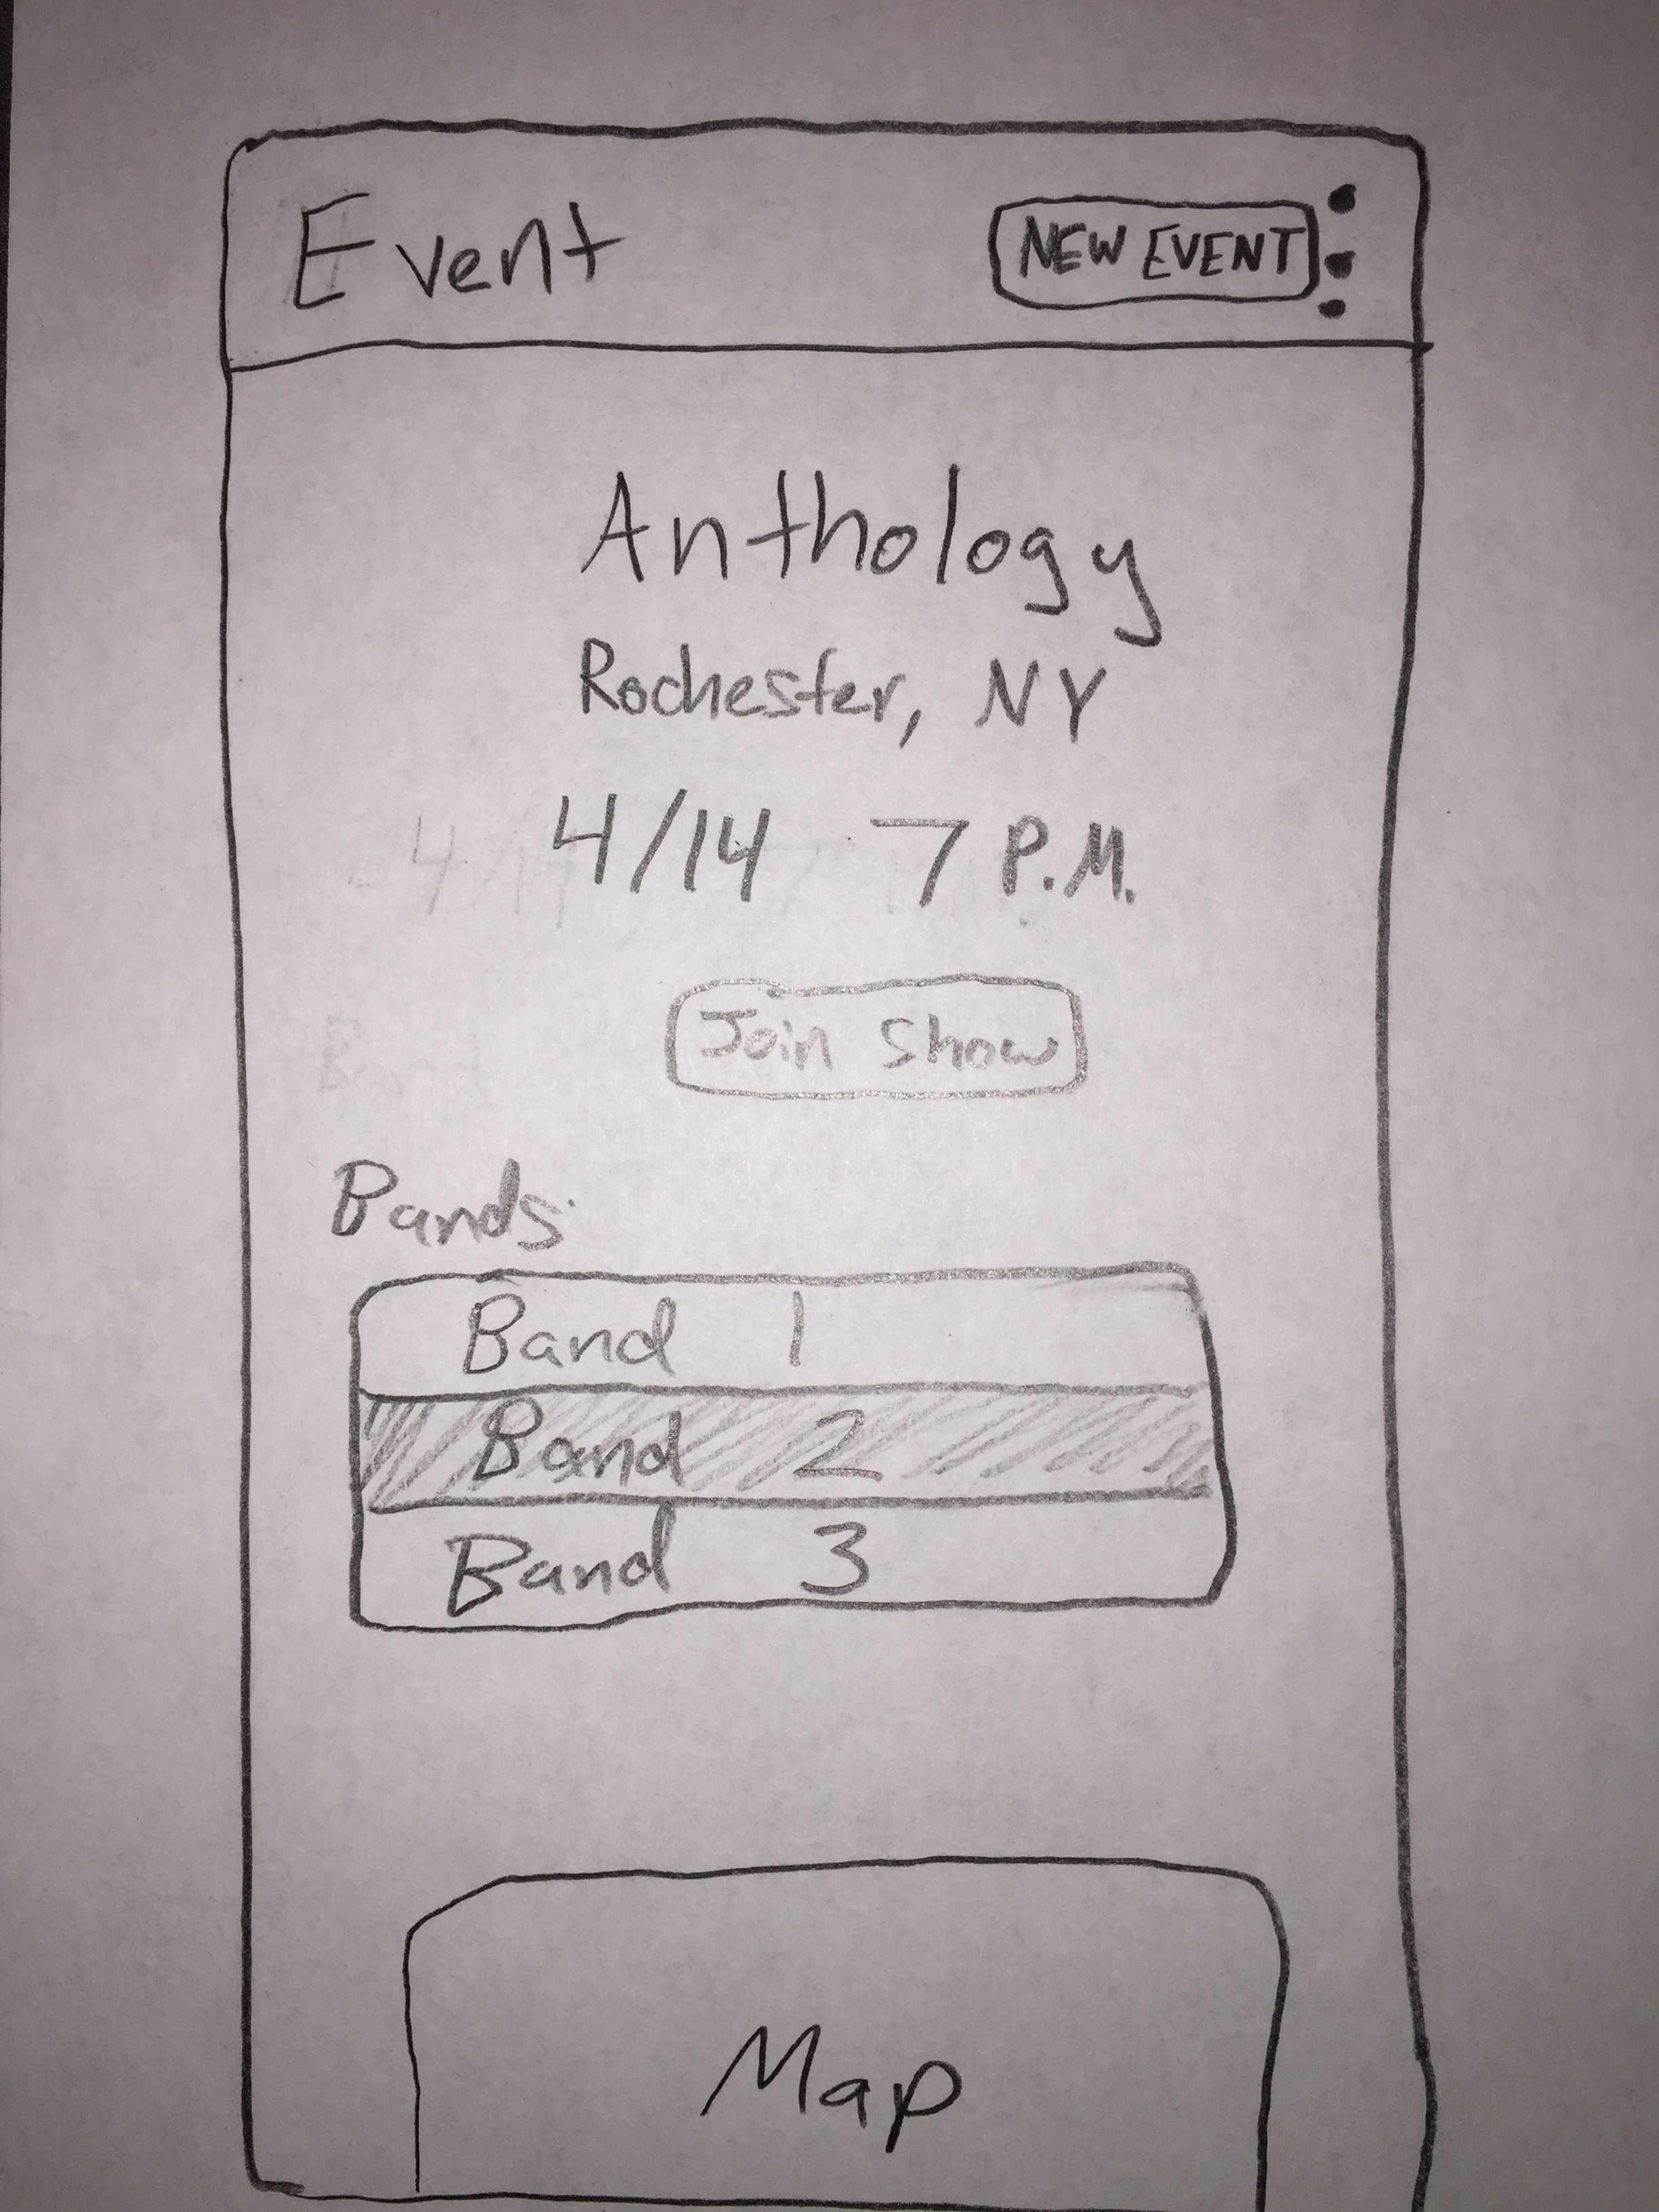 Event NEW EVENT
Anthology
Rochester, NY
4/14 7 P.M.
Join Show
Bands:
Band 1
Band 2
Band 3
Map